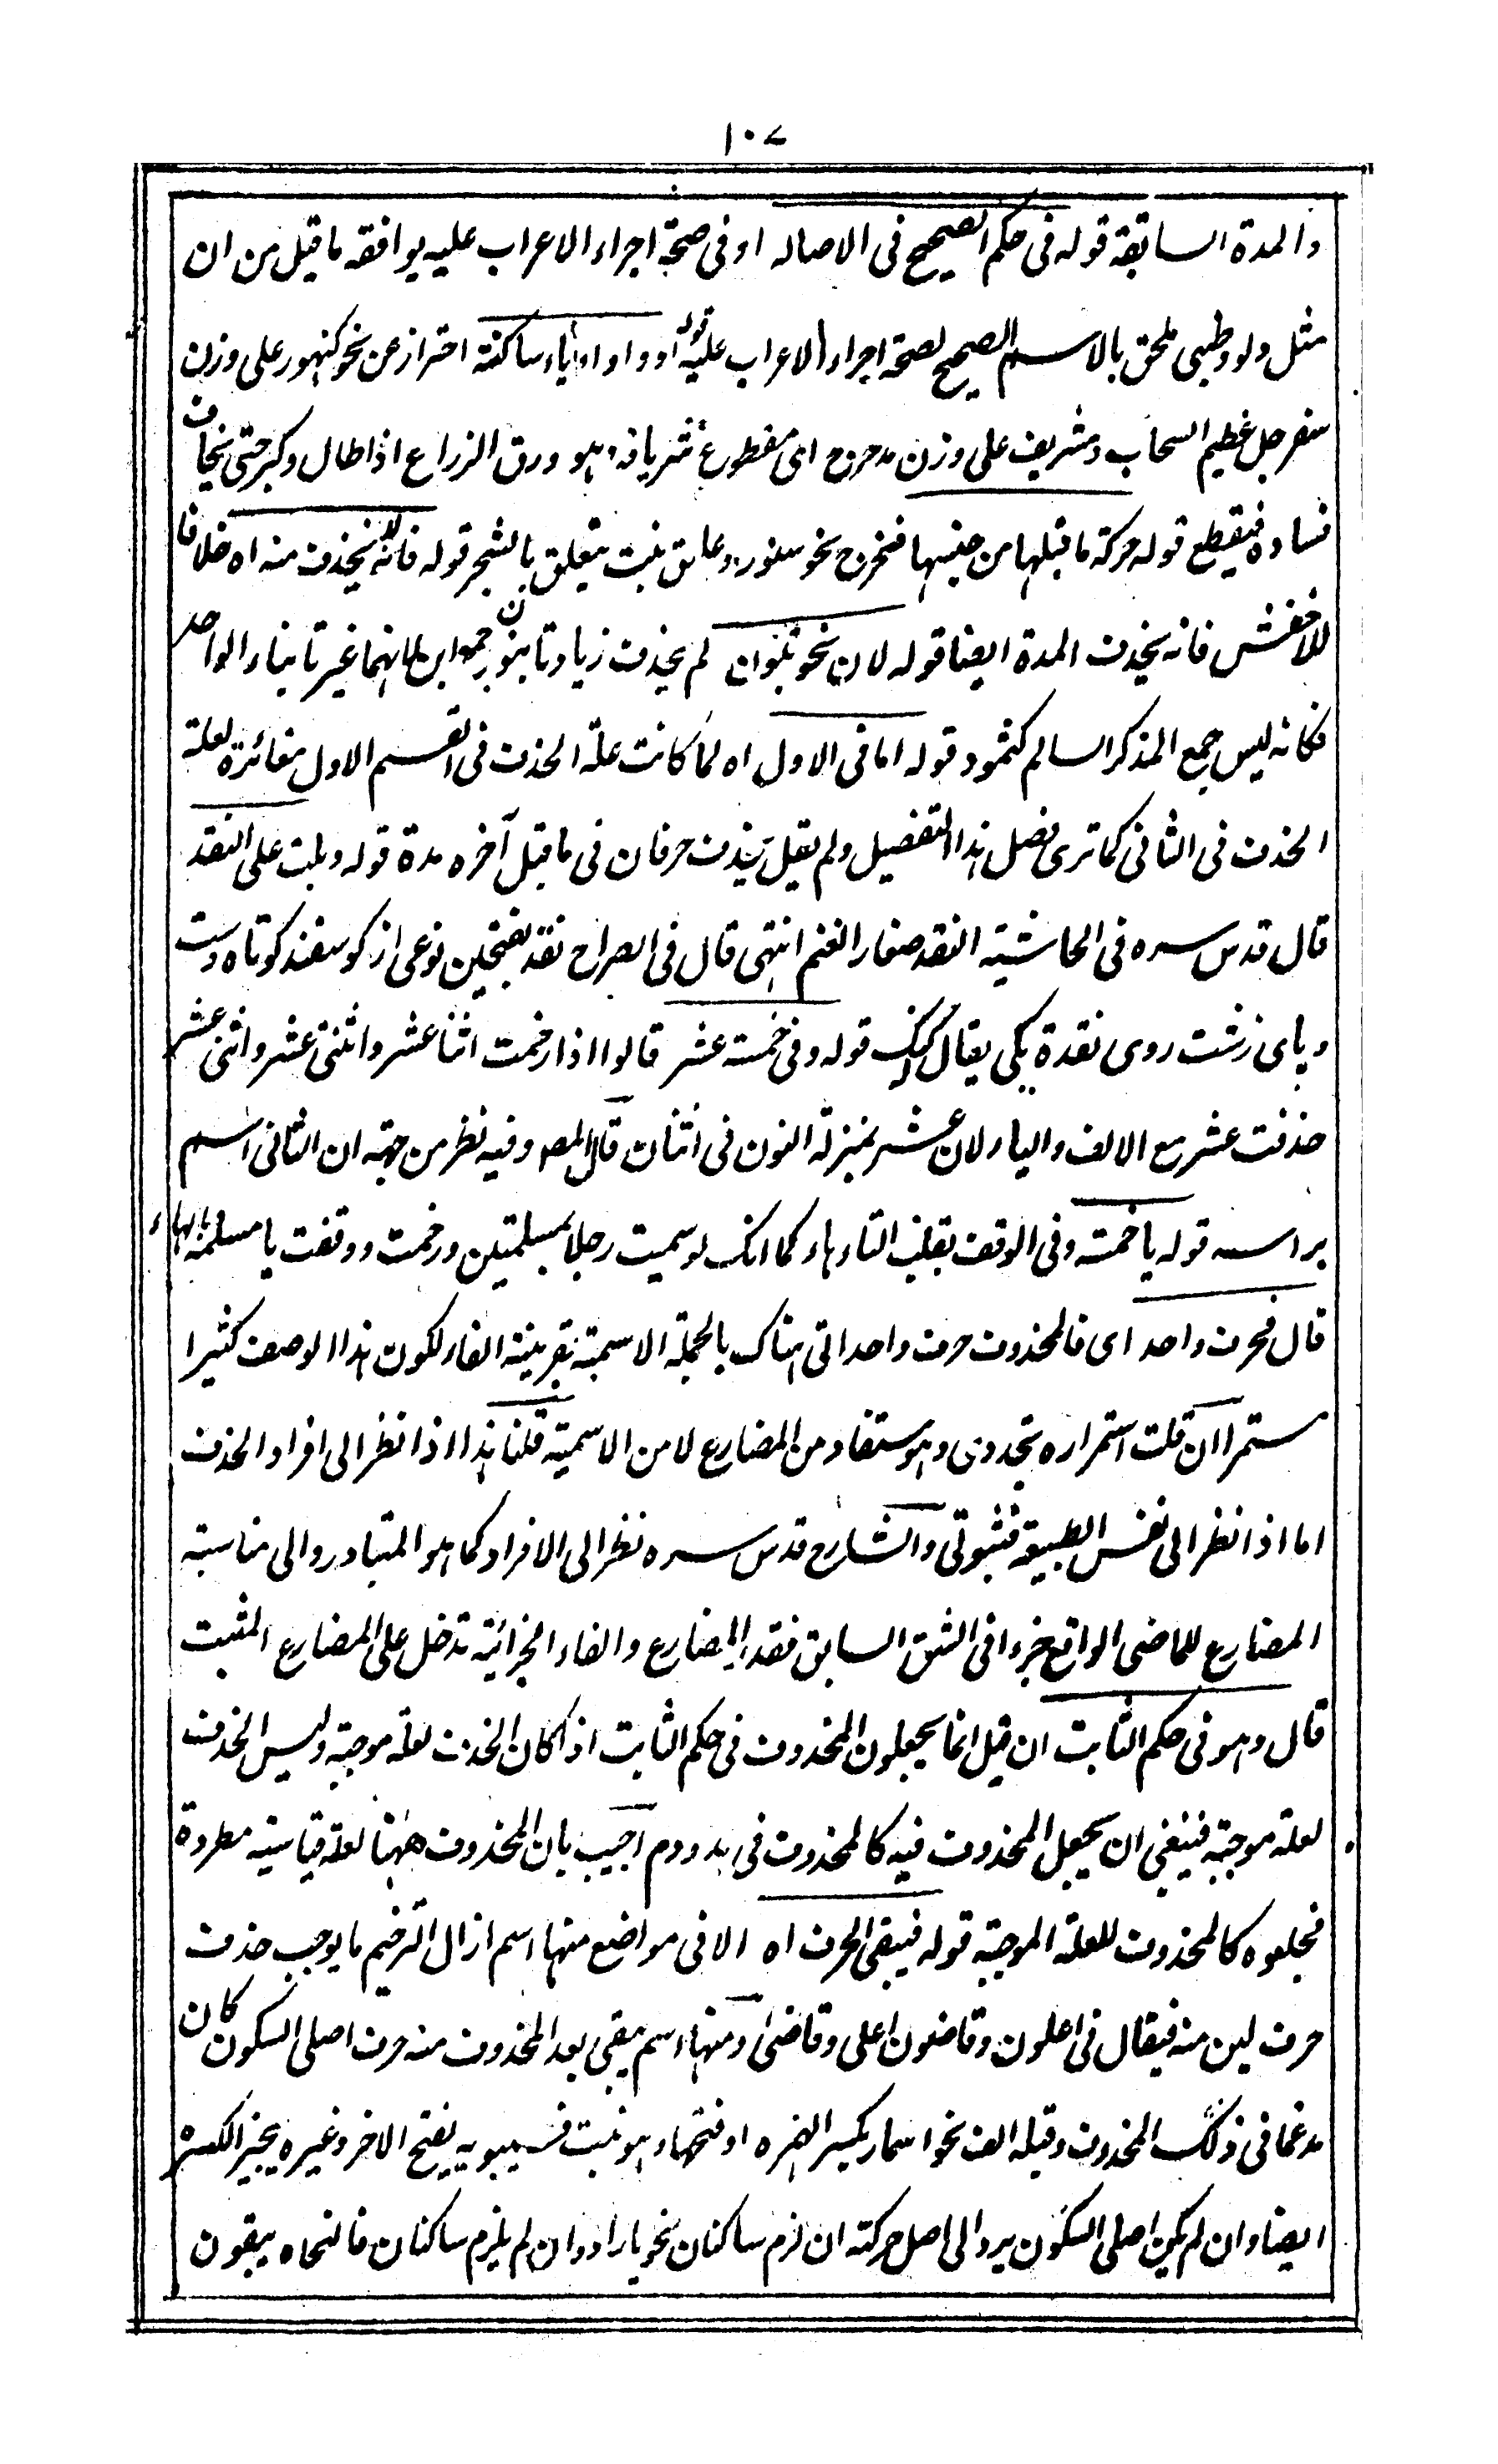 ١٠٧
والمدة السابقة قوله فى حكم الصحيح فى الاصالة او فى صحة اجراء الاعراب عليه يوافقه ما قيل من ان
مثل دلو وظبى ملحق بالاسم الصحيح لصحة اجراء الاعراب عليه قوله او واو او ياء ساكنة احتراز عن نحو كنهور على وزن
سفرجل عظيم السحاب ومشريف على وزن مدحرج اى مقطوع شريافه وهو ورق الزراع اذا طال وكبر حتى يخاف
فساده فيقطع قوله حركة ما قبلها من جنسها فخرج نحو سنور وعليق نبت يتعلق بالشجر قوله فانه لا يحذف منه اه خلافا
للاخفش فانه يحذف المدة ايضا قوله لان نحو بنون لم يحذف زيادتا بنون جمع ابن لانهما غيرتا بناء الواحد
فكانه ليس جمع المذكر السالم كثمود قوله اما فى الاول اه لما كانت علة الحذف فى القسم الاول مغائرة لعلة
الحذف فى الثانى كما ترى فصل هذا التفصيل ولم يقل يحذف حرفان فى ما قبل آخره مدة قوله وبلت على النقد
قال قدس سره فى الحاشية النقد صغار الغنم انتهى قال فى الصراح نقد بفتحين نوعى از گوسفند كوتاه دست
وپاى زشت روى نقدة يكى يقال قوله وفى خمسة عشر قالوا اذا رخمت اثنا عشر واثنتى عشر واثنى عشر
حذفت عشر مع الالف والياء لان عشر بمنزلة النون فى اثنان قال المص وفيه نظر من جهة ان الثانى اسم
براسه قوله يا خمسة وفى الوقف بقلب التاء هاء كما انك لو سميت رجلا بمسلمتين ورخمت ووقفت يا مسلمه بالهاء
قال فحرف واحد اى فالمحذوف حرف واحد اتى هناك بالجملة الاسمية بقرينة الفاء لكون هذا الوصف كثيرا
مستمرا ان قلت استمراره تجددى وهو مستفاد من المضارع لا من الاسمية قلنا هذا اذا نظر الى افراد الحذف
اما اذا نظر الى نفس الطبيعة فثبوتى والشارح قدس سره نظر الى الافراد كما هو المتبادر والى مناسبة
المضارع للماضى الواقع جزء فى الشق السابق فقدر المضارع والفاء الجزائية تدخل على المضارع المثبت
قال وهو فى حكم الثابت ان قيل انما يجعلون المحذوف فى حكم الثابت اذا كان الحذف لعلة موجبة وليس الحذف
لعلة موجبة فينبغى ان يجعل المحذوف فيه كالمحذوف فى يد ودم اجيب بان المحذوف ههنا لعلة قياسية مطردة
فجعلوه كالمحذوف للعلة الموجبة قوله فيبقى الحرف اه الا فى مواضع منها اسم ازال الترخيم ما يوجب حذف
حرف لين منه فيقال فى اعلون وقاضون اعلى وقاضى ومنها اسم يبقى بعد المحذوف منه حرف اصلى السكون كان
مدغما فى ذلك المحذوف وقبله الف نحو اسحار بكسر الهمزه او فتحها وهو نبت فسيبويه يفتح الاخر وغيره يجيز الكسر
ايضا وان لم يكن اصلى السكون يرد الى اصل حركته ان لزم ساكنان نحو يا راد وان لم يلزم ساكنان فالنحاه يبقون